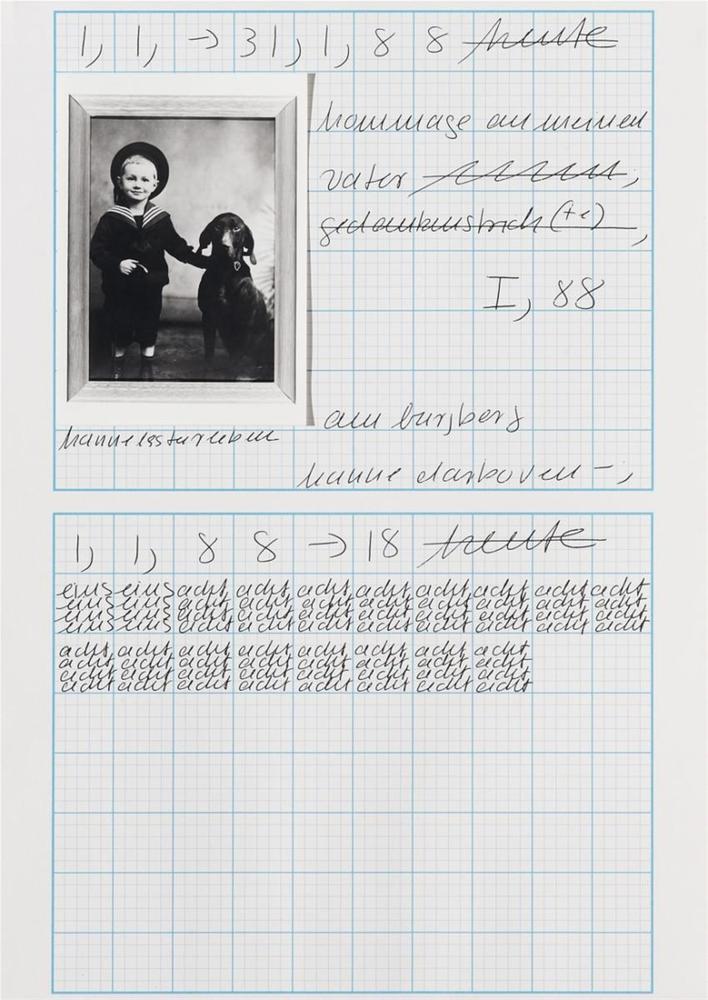 1, 1, → 31, 1, 8 8 heute
hommage an meinen
vater ,
gedankenstrich (+e) ,
I, 88
am burgberg
hanne darboven –,
1, 1, 8 8 → 18 heute
eins eins acht acht acht acht acht acht acht acht
eins eins acht acht acht acht acht acht acht acht
eins eins acht acht acht acht acht acht acht acht
eins eins acht acht acht acht acht acht acht acht
acht acht acht acht acht acht acht acht
acht acht acht acht acht acht acht acht
acht acht acht acht acht acht acht acht
acht acht acht acht acht acht acht acht